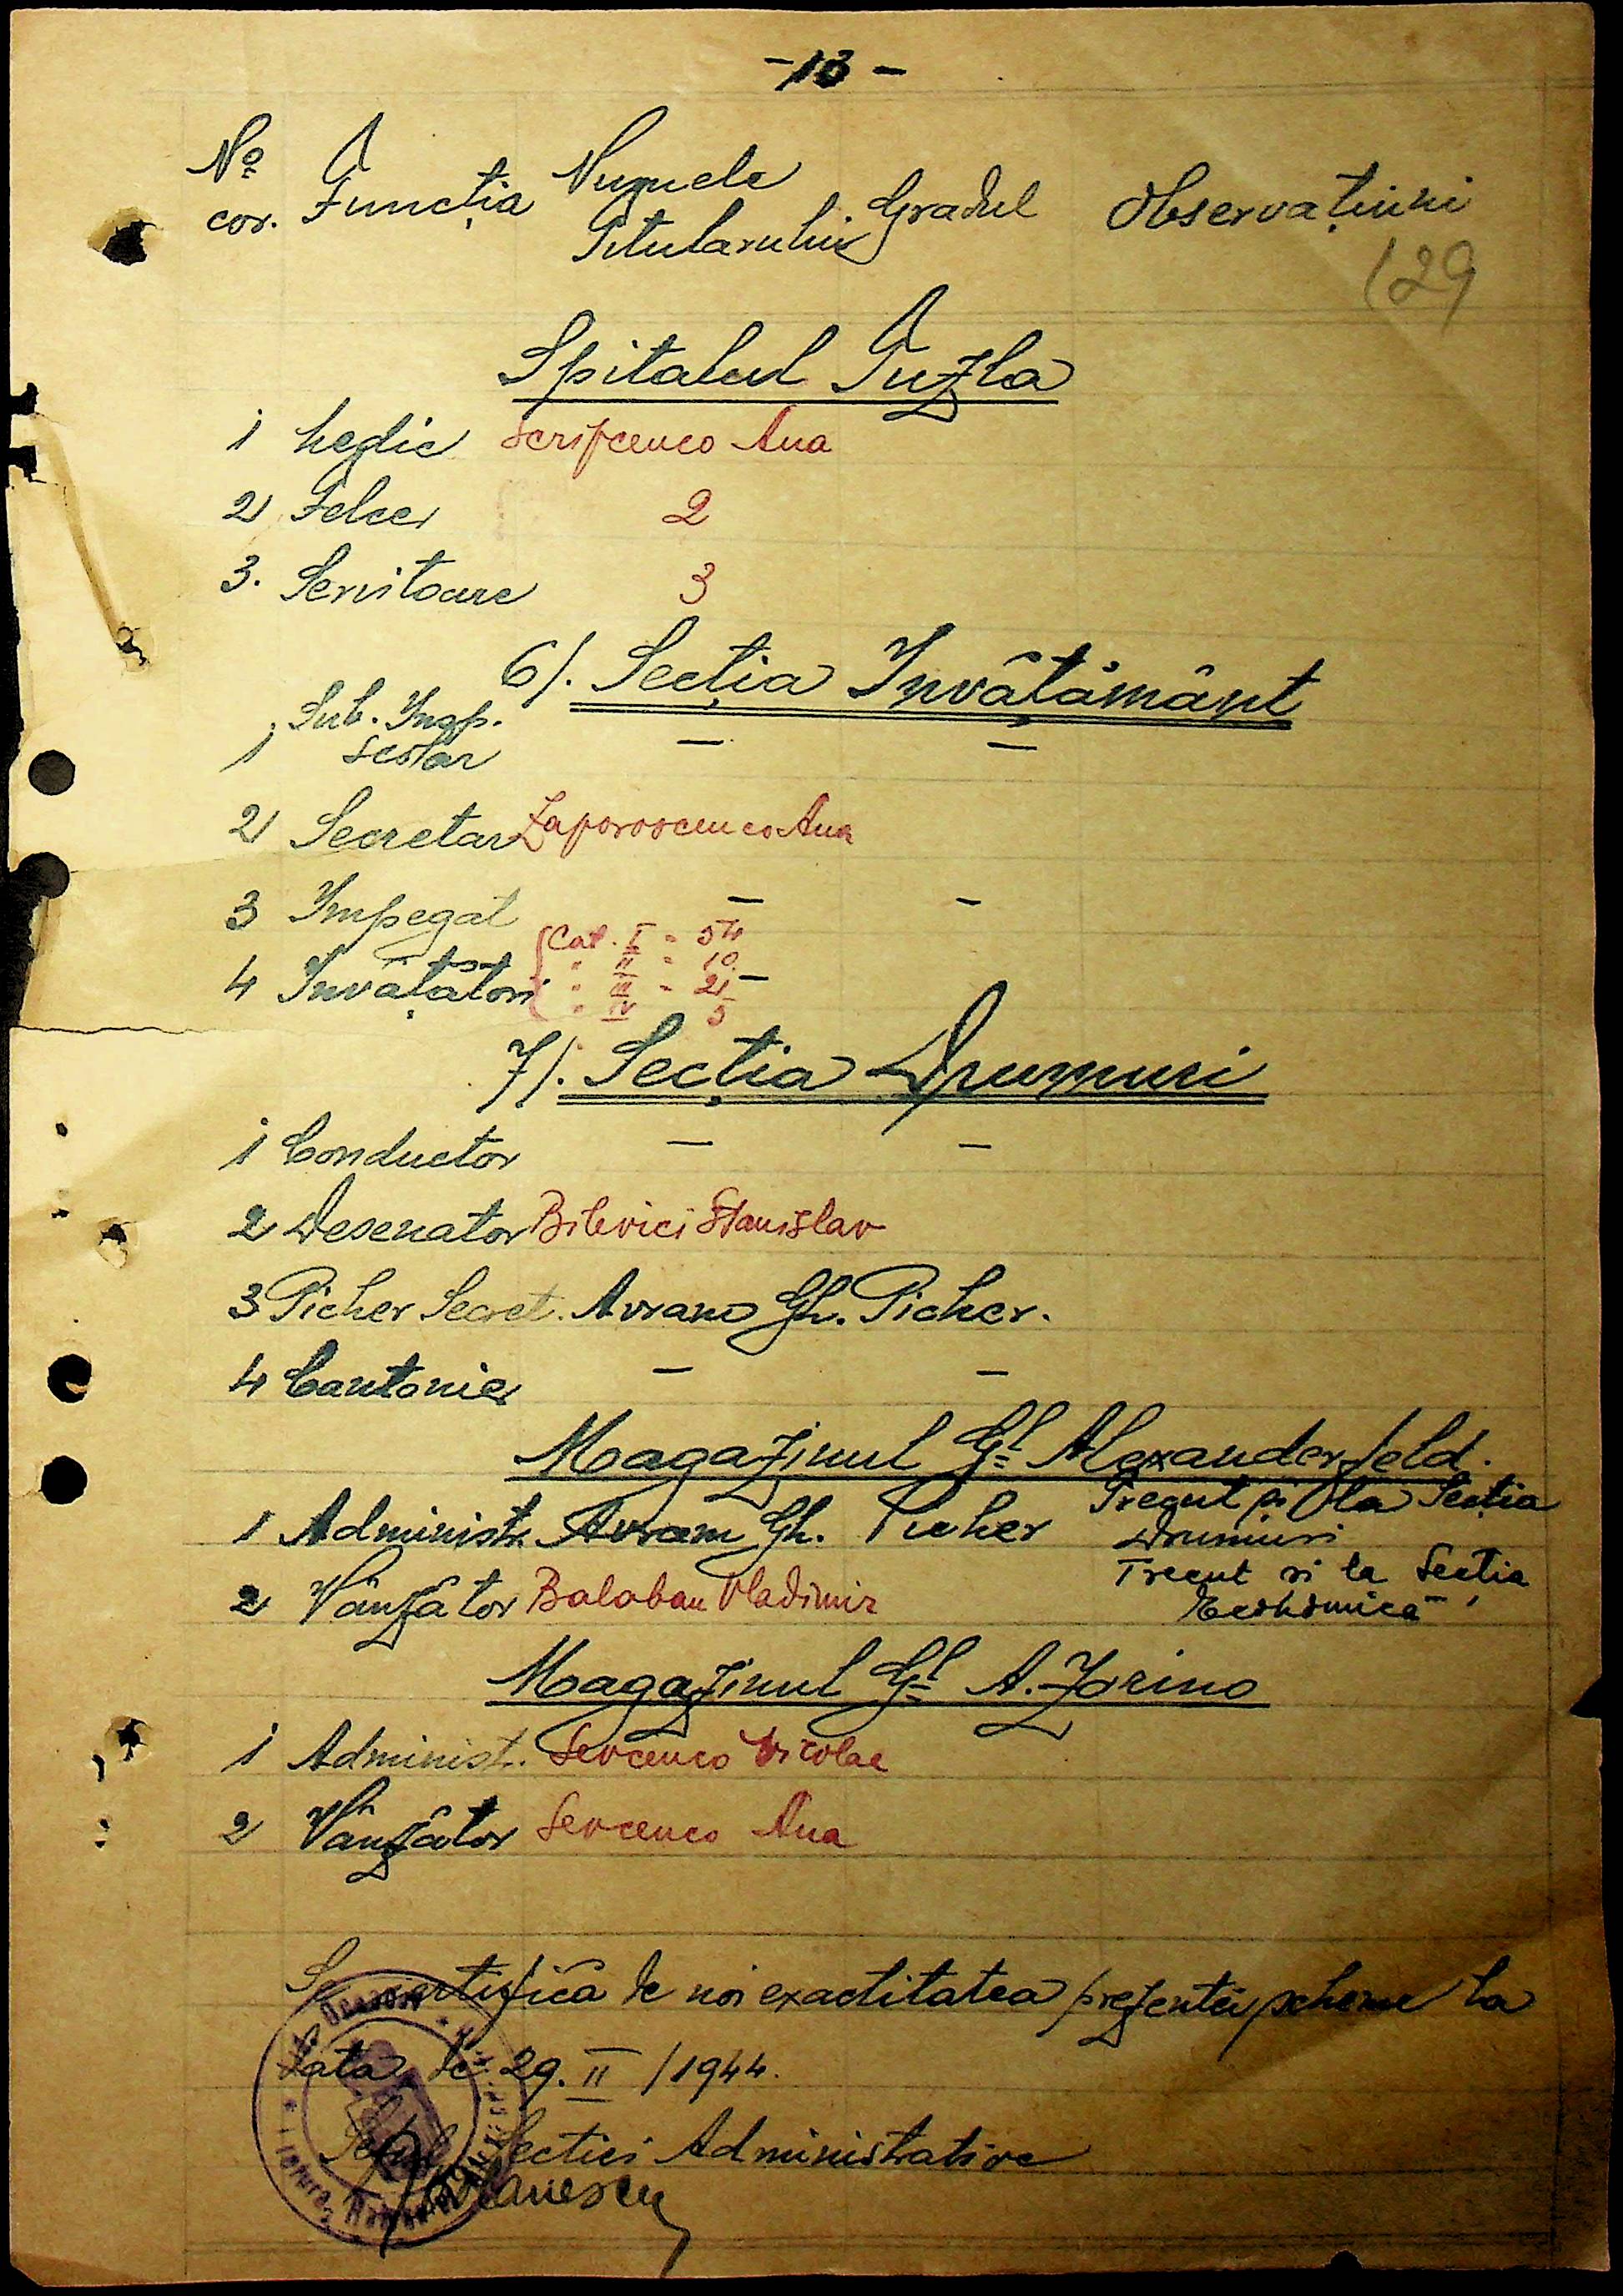 -13-
No cor. Funcția Numele Titularului Gradul Observațiuni
129
Spitalul Tuzla
1 Medic Scripcenco Ana
2 Felcer 2
3. Servitoare 3
6/. Secția Învățământ
1 Sub. Insp. Scolar — —
2 Secretar Zaporoscenco Ana
3 Impegat — —
4 Învățători Cat. I = 54
" II = 10
" III = 21 —
" IV 5
7/. Secția Drumuri
1 Conductor — —
2 Desenator Bilevici Stanislav
3 Picher Secret. Avram Gh. Picher.
4 Cantonier — —
Magazinul Gl Alexanderfeld.
1 Administr. Avram Gh. Picher Trecut și la Secția Drumuri
2 Vânzător Balaban Vladimir Trecut si la Sectia Economică
Magazinul Gl A. Zorino
1 Administ. Sevcenco Nicolae
2 Vânzător Sevcenco Ana
Se certifică de noi exactitatea prezentei scheme la
data de 29. II /1944.
Șeful Secției Administrative